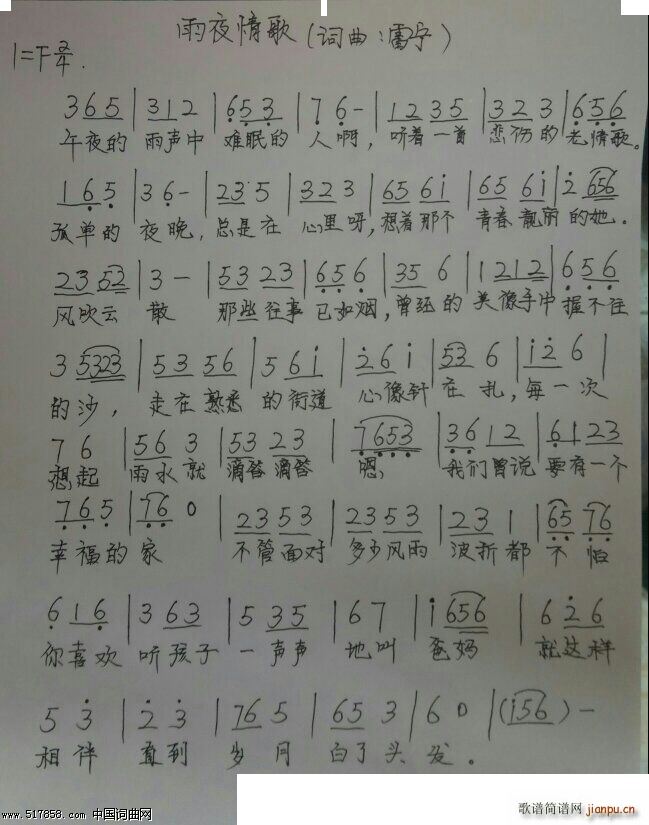 雨夜情歌(词曲:雷宁)
1=F 2/4.
3 6 5 | 3 1 2 | 6 5 3 | 7 6 - | 1 2 3 5 | 3 2 3 | 6 5 6
午夜的 雨声中 难眠的 人啊, 听着一首 悲伤的 老情歌。
1 6 5 | 3 6 - | 2 3 5 | 3 2 3 | 6 5 6 i | 6 5 6 i | 2 6 5 6
孤单的 夜晚, 总是在 心里呀, 想着那个 青春靓丽的她.
2 3 5 3 2 | 3 - | 5 3 2 3 | 6 5 6 | 3 5 6 | 1 2 1 2 | 6 5 6
风吹云 散 那些往事 已如烟, 曾经的 美像手中 握不住
3 5 3 2 3 | 5 3 5 6 | 5 6 i | 2 6 i | 5 3 6 | i 2 6 |
的沙, 走在熟悉 的街道 心像针 在扎, 每一次
7 6 | 5 6 3 | 5 3 2 3 | 7 6 5 3 | 3 6 1 2 | 6 1 2 3
想起 雨水就 滴答滴答 嗯, 我们曾说 要有一个
7 6 5 | 7 6 0 | 2 3 5 3 | 2 3 5 3 | 2 3 1 | 6 5 7 6
幸福的 家 不管面对 多少风雨 波折都 不 怕
6 1 6 | 3 6 3 | 5 3 5 | 6 7 | i 6 5 6 | 6 2 6
你喜欢 听孩子 一声声 地叫 爸妈 就这样
5 3 | 2 3 | 7 6 5 | 6 5 3 | 6 0 | (i 5 6) -
相伴 直到 岁月 白了头 发。
www.517858.com 中国词曲网
歌谱简谱网
jianpu.cn